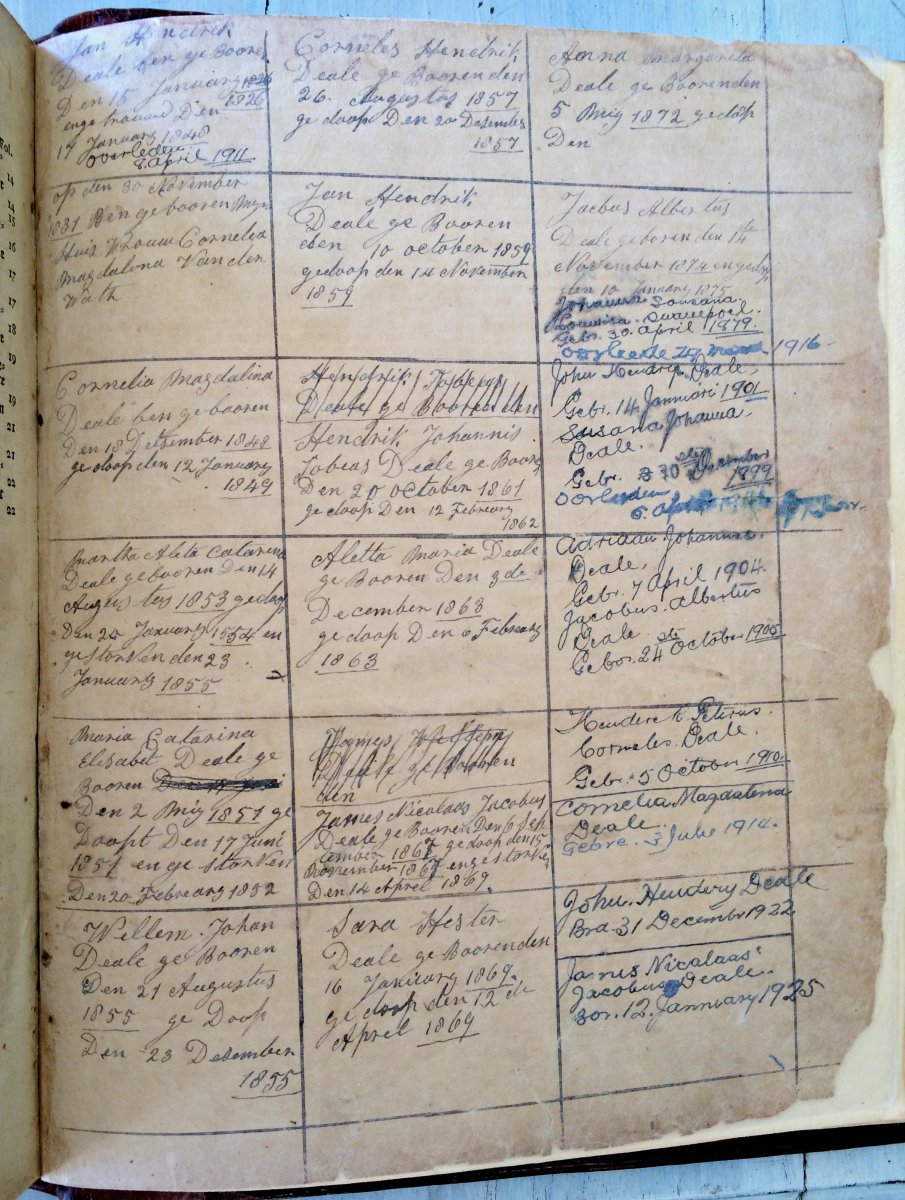 Jan Hendrik
Deale ben ge Booren
Den 15 Januarg 1826
1826
en ge trouwd Den
17 January 1848
overleden
8 April 1911
op den 30 November
1831 Ben gebooren Myn
Huis Vrouw Cornelia
Magdalena Van den
Wath
Cornelia Magdalina
Deale ben gebooren
Den 18 Detsember 1848
ge doop den 12 January
1849
Martha Aleta Catarina
Deale gebooren Den 14
Augustus 1853 gedoop
Den 24 January 1554 en
gestorven den 23
January 1855
Maria Catarina
Elisabet Deale ge
Booren
Den 2 Mig 1851 ge
Doopt Den 17 Juni
1851 en ge storven
Den 20 Februarg 1852
Wellem Johan
Deale ge Booren
Den 21 Augustus
1855 ge Doop
Den 23 Desember
1855
Corneles Hendrik
Deale ge Booren den
26 Augustus 1857
ge doop Den 20 Desember
1857
Jan Hendrik
Deale ge Booren
den 10 october 1859
gedoop den 14 November
1859
Hendrik Tobeas
Deale ge Booren den
Hendrik Johannis
Tobeas Deale ge Booren
Den 20 october 1861
ge doop Den 12 Februarg
1862
Aletta Maria Deale
ge Booren Den 3de
December 1863
ge doop Den 6 Februarg
1863
James
ge Booren
den
James Nicolaas Jacobus
Deale ge Booren Den 6 Sep
tember 1867 ge doop den 15
November 1867 en ge storven
Den 14 Aprel 1869.
Sara Hester
Deale ge Boorenden
16 Januarg 1869.
ge doop den 12 de
Aprel 1869
Anna Margarita
Deale ge Boorenden
5 Mig 1872 gedoop
Den
Jacbus Albertus
Deale geboren den 14de
November 1874 en gedop
den 10 January 1875
Johanna Sousana
Louwisa Swanepoel.
Gebr. 30 April 1879.
oorleede 29 1916
John Hendrik Deale,
Gebr. 14 Januari 1901
Susana Johanna,
Deale.
Gebr. 30ste December
1899
oorleeden
6 Ap
Adriaan Johannes.
Deale,
Gebr. 7 April 1904.
Jacobus Albertus
Deale
Gebor. 24ste October 1905
Henderek Petrus.
Corneles Deale.
Gebr. 5 October 1910.
Cornelia Magdalena
Deale.
Gebre. 3 Julie 1914.
John Hendry Deale
Bra 31 Decembr 1922
James Nicalaas
Jacobus Deale.
Bor. 12 January 1925